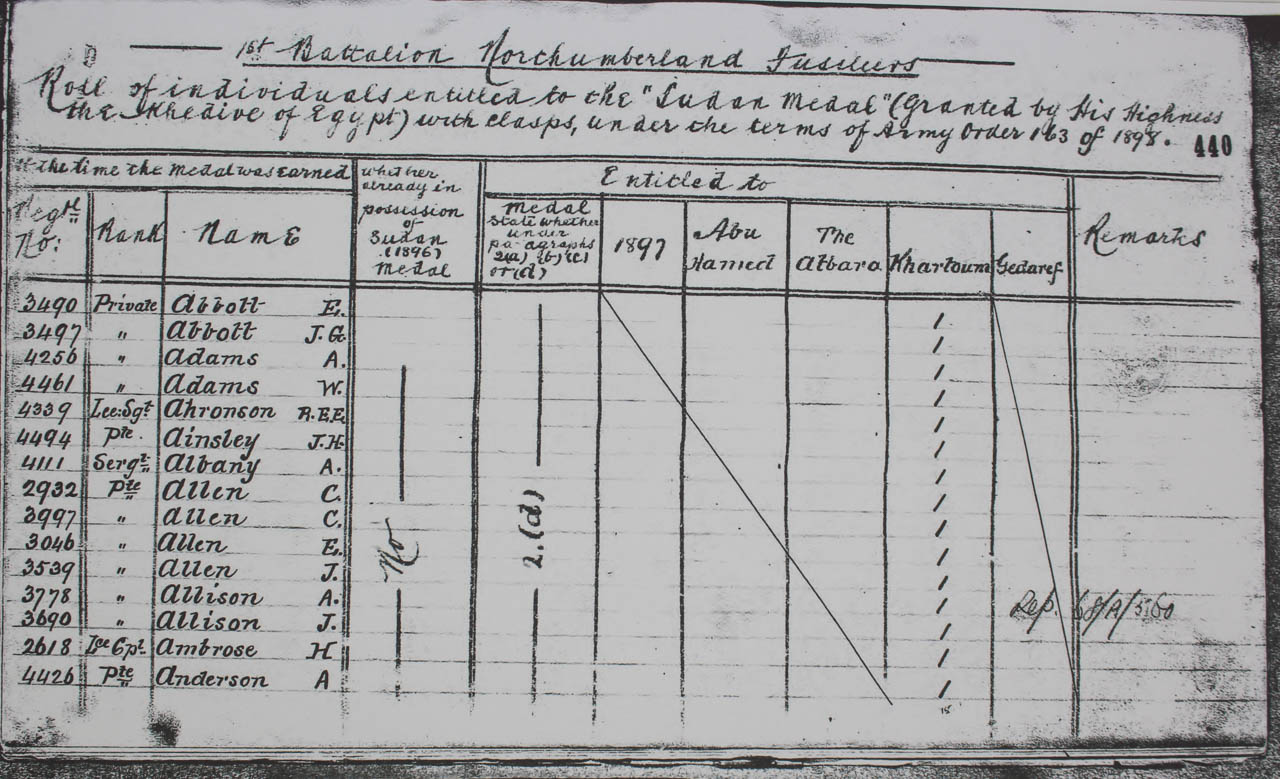 1st Battalion Northumberland Fusiliers
Roll of individuals entitled to the "Sudan Medal" (Granted by His Highness
the Khedive of Egypt) with clasps, under the terms of Army Order 163 of 1898. 440
At the time the Medal was Earned
Regtl No: Rank Name
whether
already in
possession
of
Sudan
(1896)
Medal
Entitled to
Medal
State whether
under
paragraphs
2(a) (b) (c)
or (d)
1897 Abu Hamed The Atbara Khartoum Gedaref
Remarks
3490 Private Abbott E. /
3497 " Abbott J.G. /
4256 " Adams A. /
4461 " Adams W. /
4339 Lce: Sgt Ahronson R.E.E. /
4494 Pte. Ainsley J.H. /
4111 Sergt Albany A. /
2932 Pte Allen C. /
3997 " Allen C. /
3046 " Allen E. /
3539 " Allen J. /
3778 " Allison A. /
3690 " Allison J. /
2618 Lce Cpt. Ambrose H /
4426 Pte Anderson A /
No
2.(d)
Rep. 68/A/5160
15